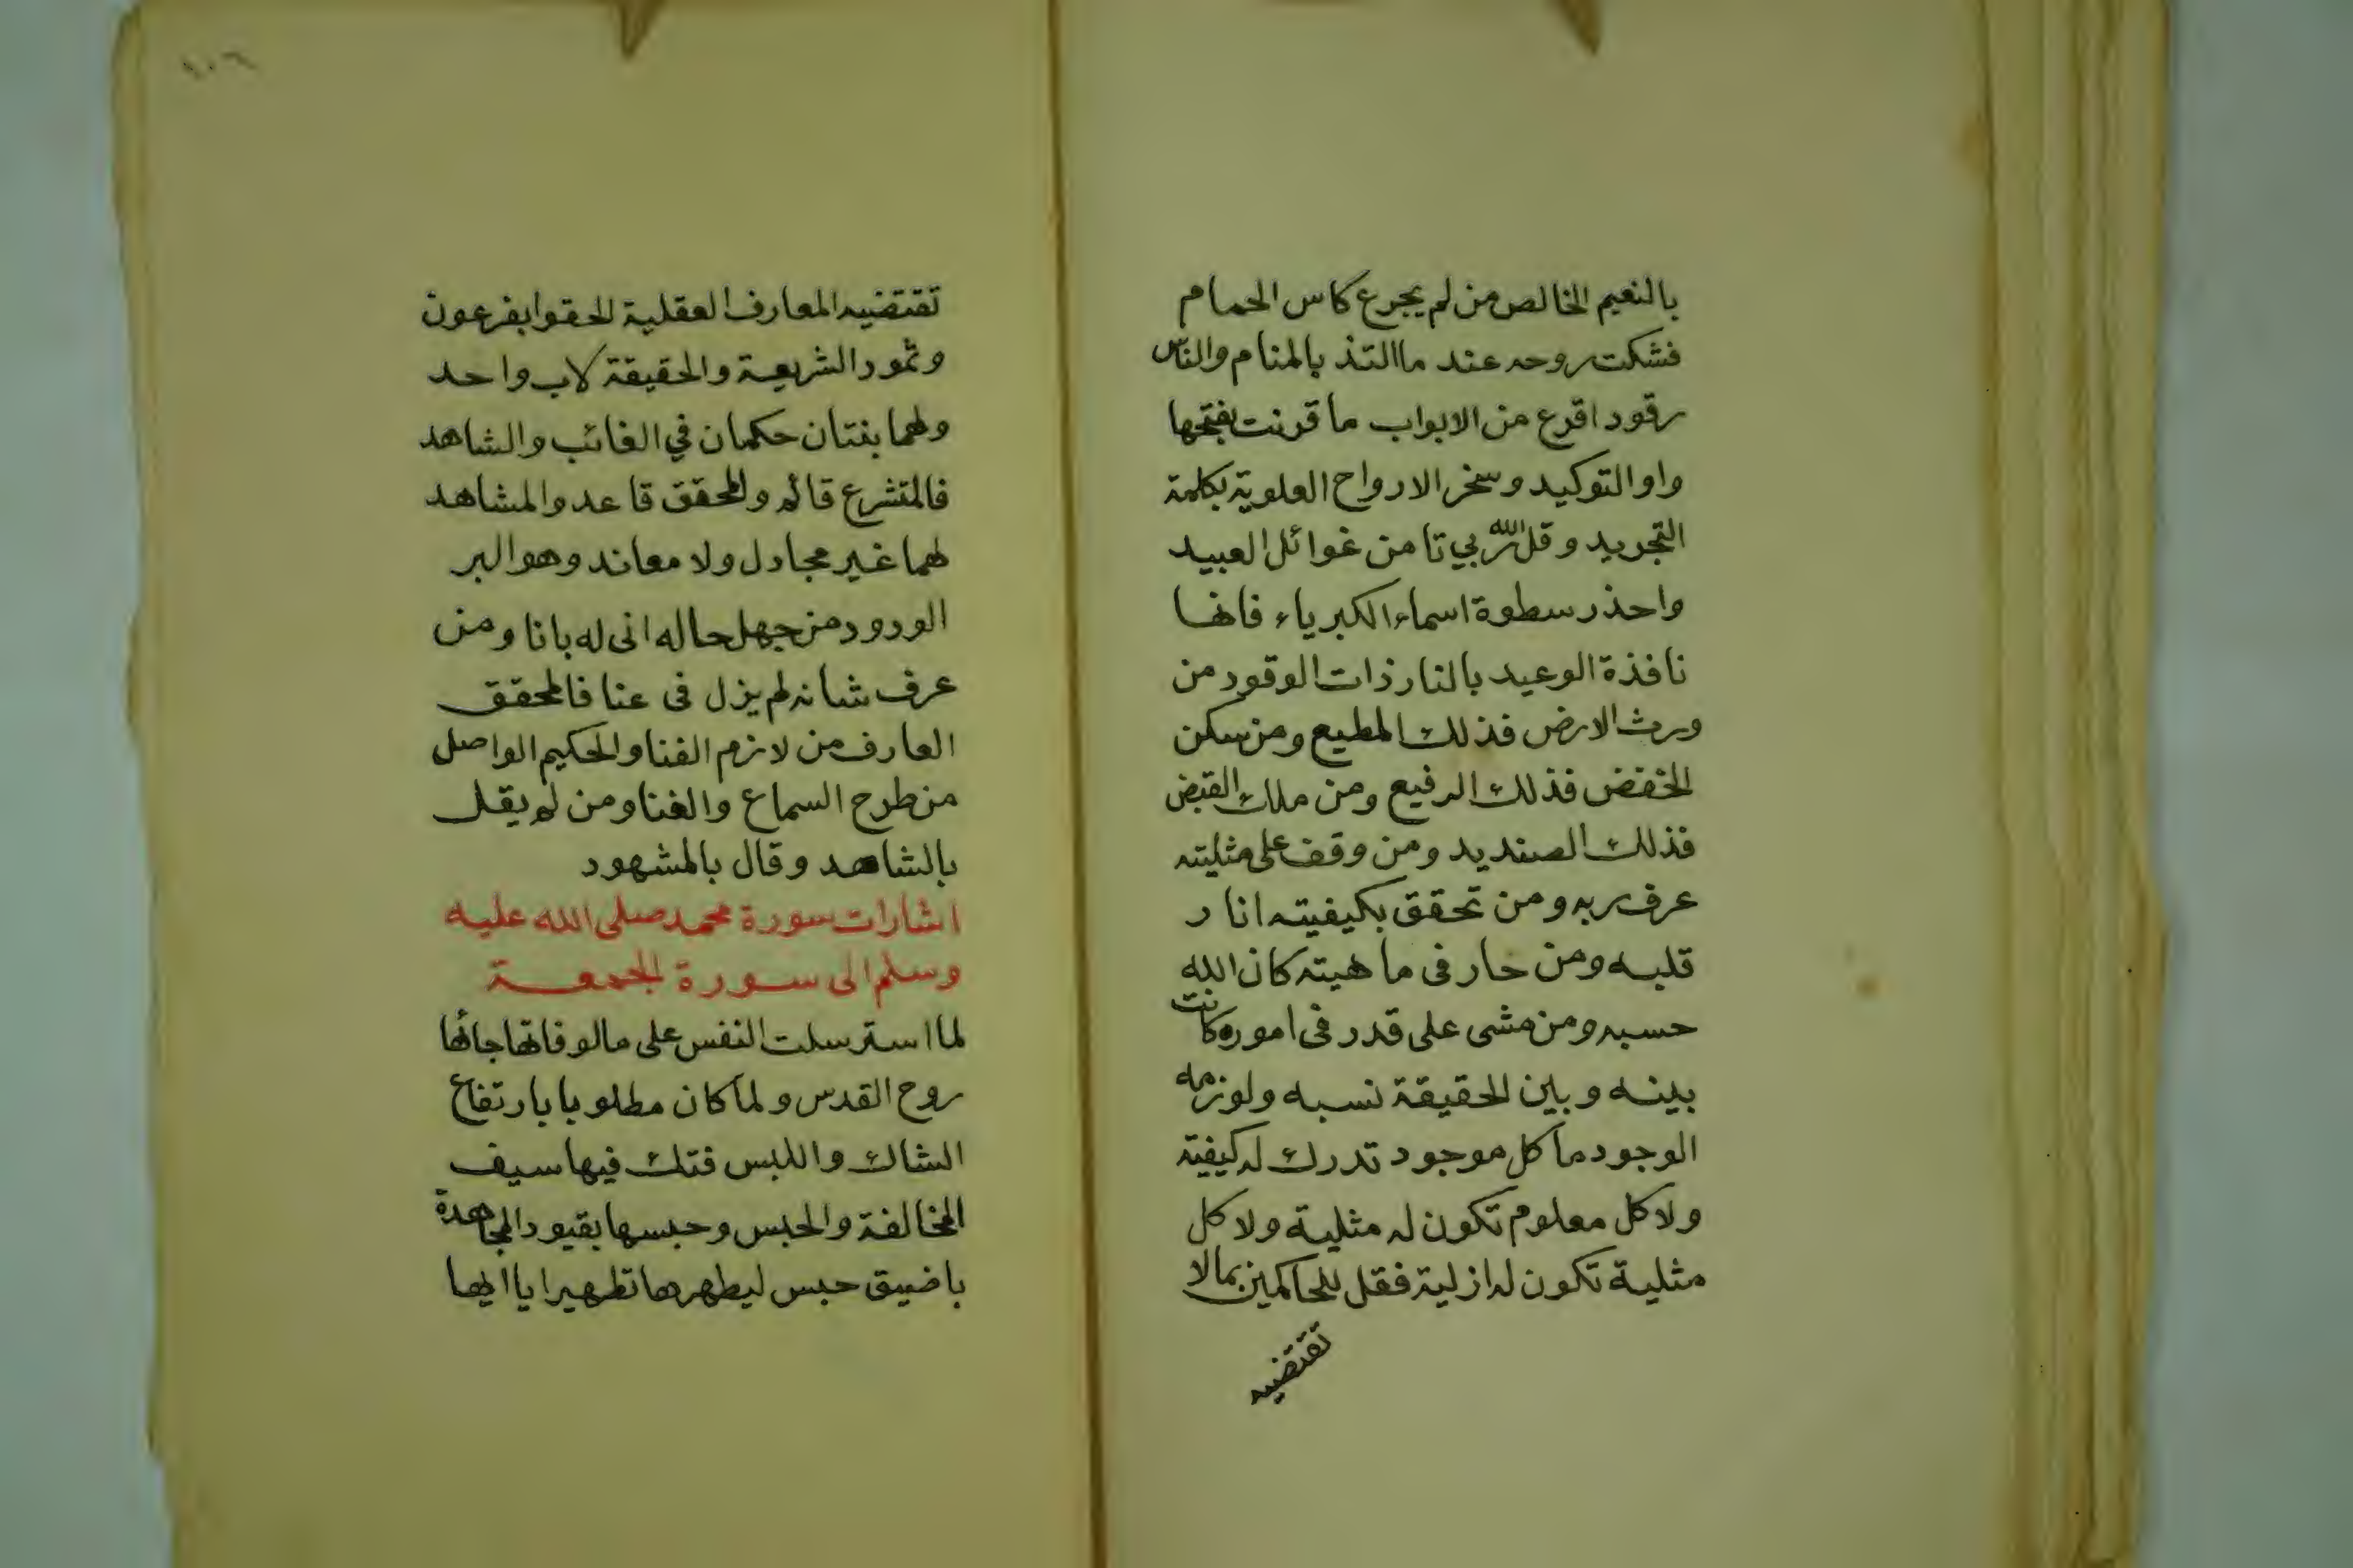 بالنعيم الخالص من لم يجرع كاس الحمام
فشكت روحه عند ما التذ بالمنام والناس
رقود اقرع من الابواب ما قرنت بفتحها
واو التوكيد وسخر الارواح العلوية بكلمة
التجريد وقل الله ربي تا من غوائل العبيد
واحذر سطوة اسماء الكبرياء فانها
نافذة الوعيد بالنار ذات الوقود من
ورث الارض فذلك المطيع ومن سكن
الخفض فذلك الرفيع ومن ملك القبض
فذلك الصنديد ومن وقف على مثليته
عرف ربه ومن تحقق بكيفيته انار
قلبه ومن حار في ماهيته كان الله
حسبه ومن مشى على قدر في اموره كانت
بينه وبين الحقيقة نسبه ولوزمه
الوجود ما كل موجود تدرك له كيفية
ولا كل معلوم تكون له مثلية ولا كل
مثلية تكون له ازلية فقل للحاكمين بمالا
تقتضيه
١٠٦
تقتضيه المعارف العقلية الحقوا بفرعون
وثمود الشريعة والحقيقة لاب واحد
ولهما بنتان حكمان في الغائب والشاهد
فالمتشرع قائم والمحقق قاعد والمشاهد
لهما غير مجادل ولا معاند وهو البر
الورود من جهل حاله انى له بانا ومن
عرف شانه لم يزل في عنا فالمحقق
العارف من لازم الفنا والحكيم الواصل
من طرح السماع والغنا ومن لم يقل
بالشاهد وقال بالمشهود
اشارات سورة محمد صلى الله عليه
وسلم الى سورة الجمعة
لما استرسلت النفس على مالوفاتها جائها
روح القدس ولما كان مطلوبا بارتفاع
الشك واللبس فتك فيها سيف
المخالفة والحبس وحبسها بقيود المجاهدة
باضيق حبس ليطهرها تطهيرا يا ايها